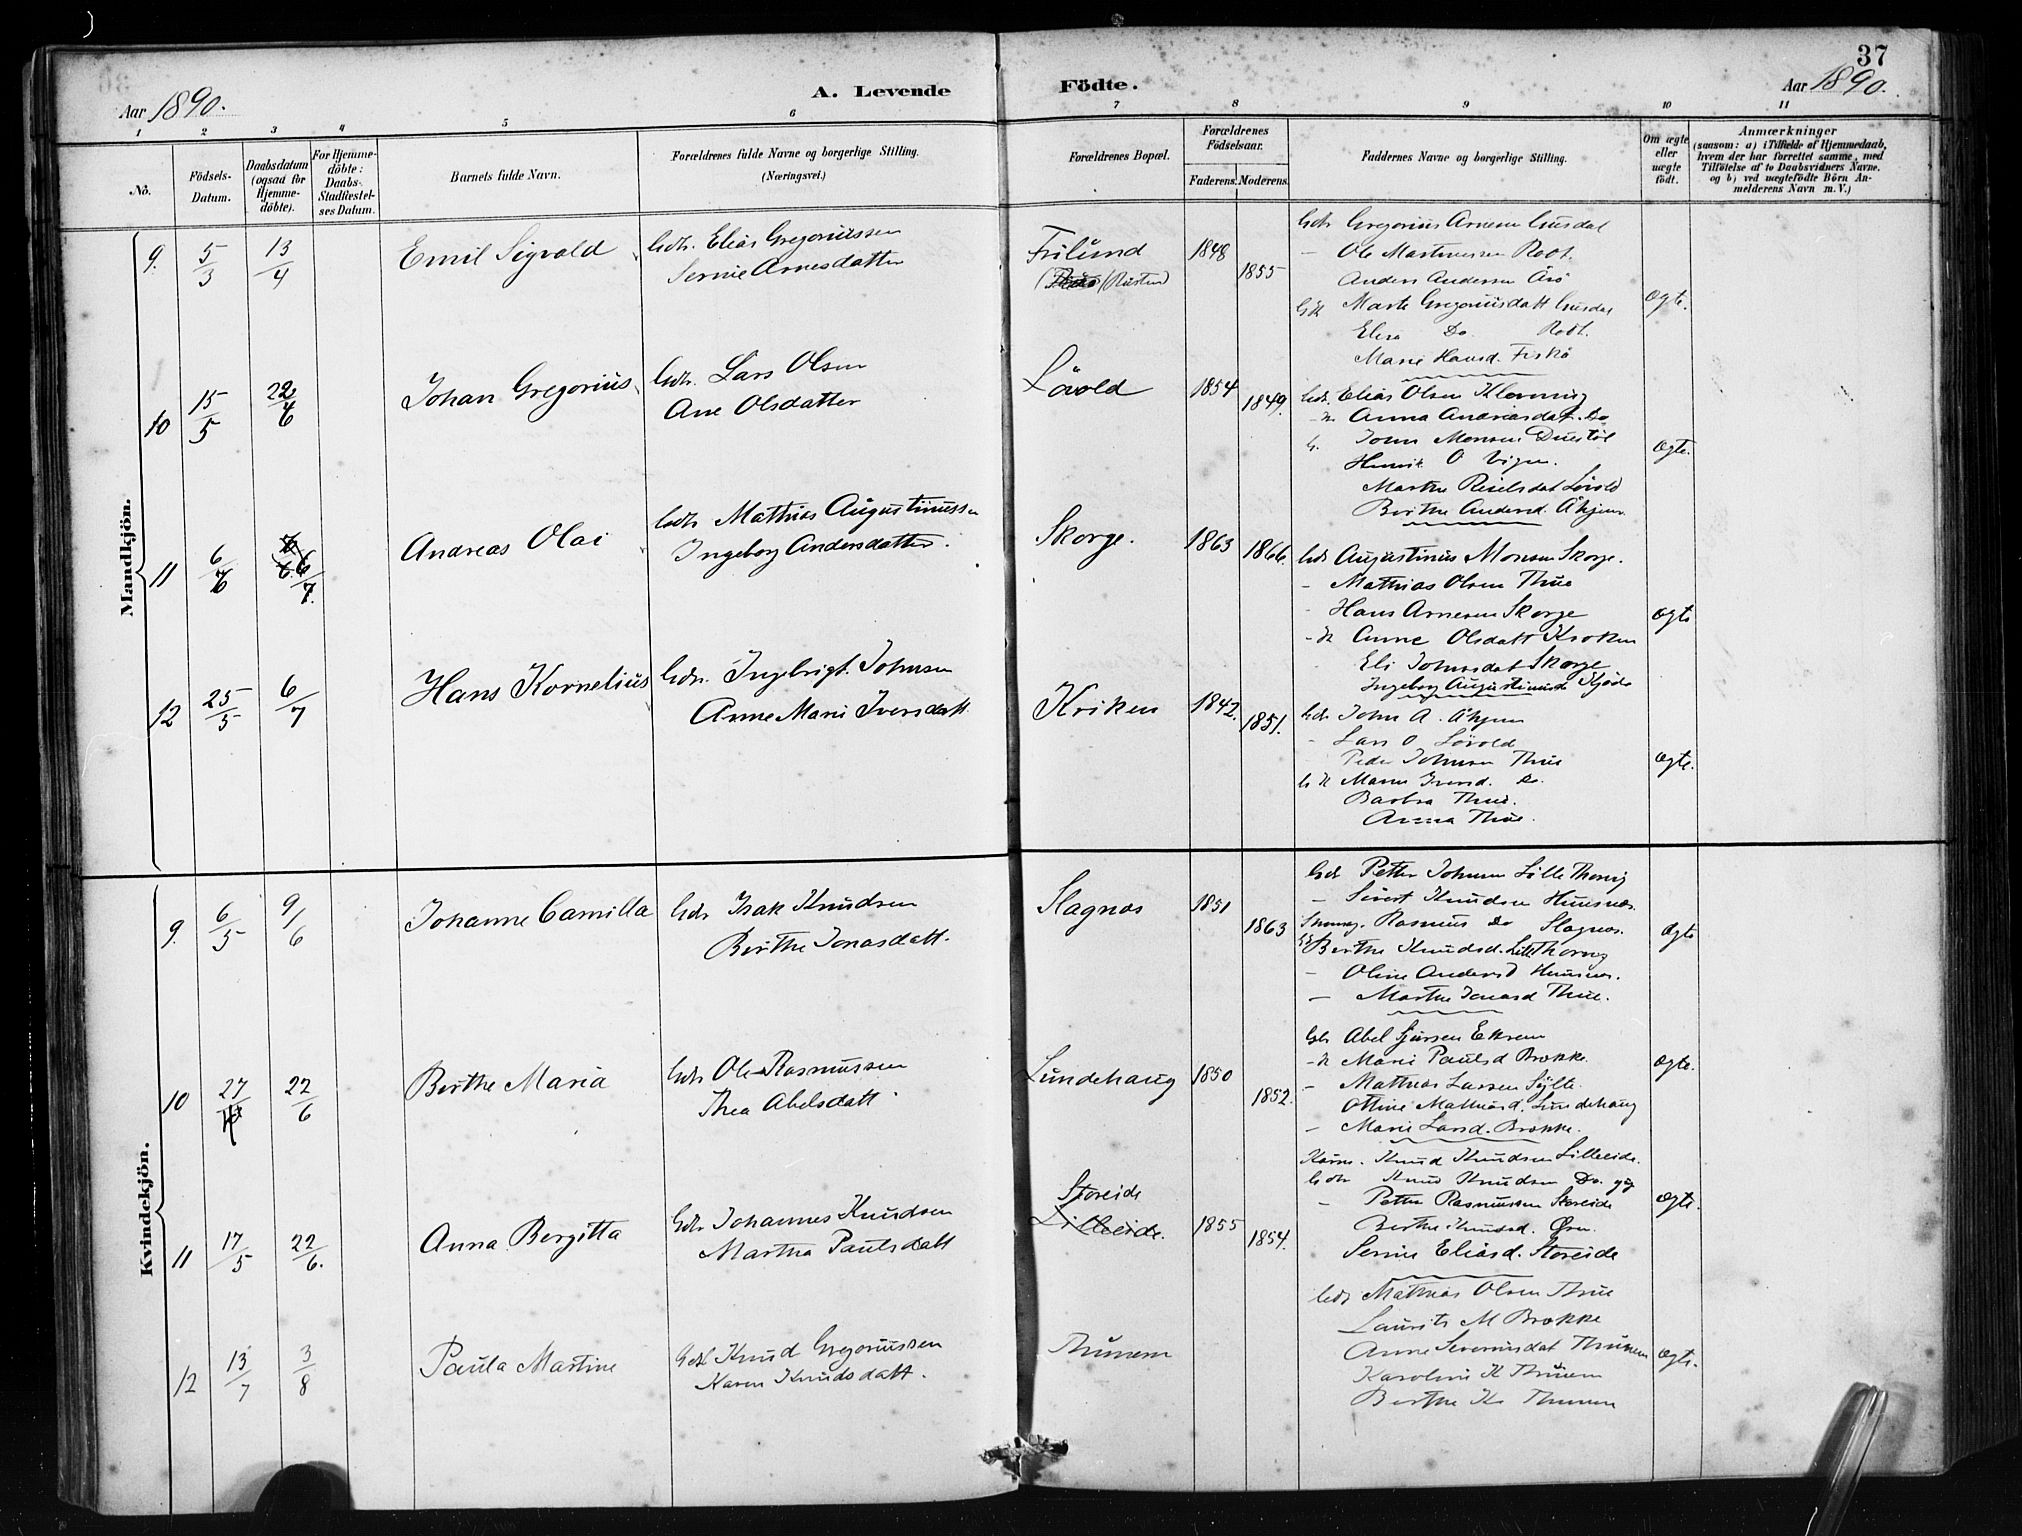 37
Aar 1890.
A. Levende
Födte.
Aar 1890.
1 2 3 4 5 6 7 8 9 10 11
No.
Födsels-Datum.
Daabsdatum (ogsaa for Hjemme-döbte).
For Hjemme-döbte: Daabs-Stadfæstel-ses Datum.
Barnets fulde Navn.
Forældrenes fulde Navne og borgerlige Stilling. (Næringsvei.)
Forældrenes Bopæl.
Forældrenes Födselsaar.
Faderens. Moderens.
Faddernes Navne og borgerlige Stilling.
Om ægte eller uægte födt.
Anmærkninger
(saasom: a) i Tilfælde af Hjemmedaab, hvem der har forrettet samme, med Tilföielse af to Daabsvidners Navne, og b) ved uægtefödte Börn An-melderens Navn m. V.)
Mandkjön.
9. 5/3 13/4 Emil Sigvald
Gdr. Elias Gregoriussen
Serine Arnesdatter
Frilund
(Rusten)
1848 1855
Gdr Gregorius Arnesen Gusdal
— Ole Martinussen Rodt.
Anders Andersen Årö
Gk Marte Gregoriusdatt Gusdal
Elisa Do Rodt.
Marie Hansd. Fiskö
Ægte.
10 15/5 22/6 Johan Gregorius
Gdr. Lars Olsen
Ane Olsdatter
Lövold
1854 1849.
Gdr. Elias Olsen Klevning
K Anna Andreasdat. Do
G. John Monsen Duestöl
Henrik O Vigen.
Marthe Lövold
Berthe Andersd Åhjem
Ægte.
11 6/6 6/7. Andreas Olai
Gdr Mathias Augustinussen
Ingeborg Andersdatter.
Skorge.
1863 1866.
Gdr Augustinus Monsen Skorge.
— Mathias Olsen Thue
Hans Arnesen Skorge
- K Anne Olsdatt Kroken
Eli Johnsdat Skorge
Ingeborg
Ægte
12 25/5 6/7 Hans Kornelius
Gdr. Ingebrigt Johnsen
Anne Marie Iversdatt
Kriken
1842. 1851.
Gdr John A. Åhjem
- Lars O Lövold
Peder Johnsen Thue
G K Marie Iversd. Do.
Barbra Thue.
Anna Thue.
Ægte.
Kvindekjön.
9. 6/5 9/6 Johanne Camilla
Gdr Isak Knudsen
Berthe Jonasdatt.
Slagnæs
1851 1863
Gdr Petter Johnsen Lille Thoevig
— Sivert Knudsen Huusnæs.
Rasmus Do Slagnæs.
Berthe Knudsd. Lille
— Oline Andersd Huusnæs.
— Marthe Jonasd Thue.
Ægte
10 27/ 22/6 Berthe Maria
Gdr Ole Rasmussen
Thea Abelsdatt.
Lundehaug
1850 1852.
Gdr Abel Sjursen Eksem
- K Marie Paulsd Brække
— Mathias Larsen Sylte.
Ottine Mathiasd. Lundehaug
— Marie Larsd. Brække.
Ægte.
11 17/5 22/6. Anna Bergitta
Gdr Johannes Knudsen
Martha Paulsdatt
Storeide
Lilleeide.
1855 1854.
Knud Knudsen Lilleeide.
Gdr Knud Knudsen Do.
— Petter Rasmussen Storeide
Berthe Knudsd. Ørsn
Serine Eliasd. Storeide
Ægte.
12 13/7 3/8 Paula Martine
Gdr Knud Gregoriussen
Karen Knudsdatt.
Thunem
Gdr Mathias Olsen Thue
Laurits M Brække
Anne Severinsdat Thunem
Karoline K Thunem
Berthe K Thunem
Ægte.